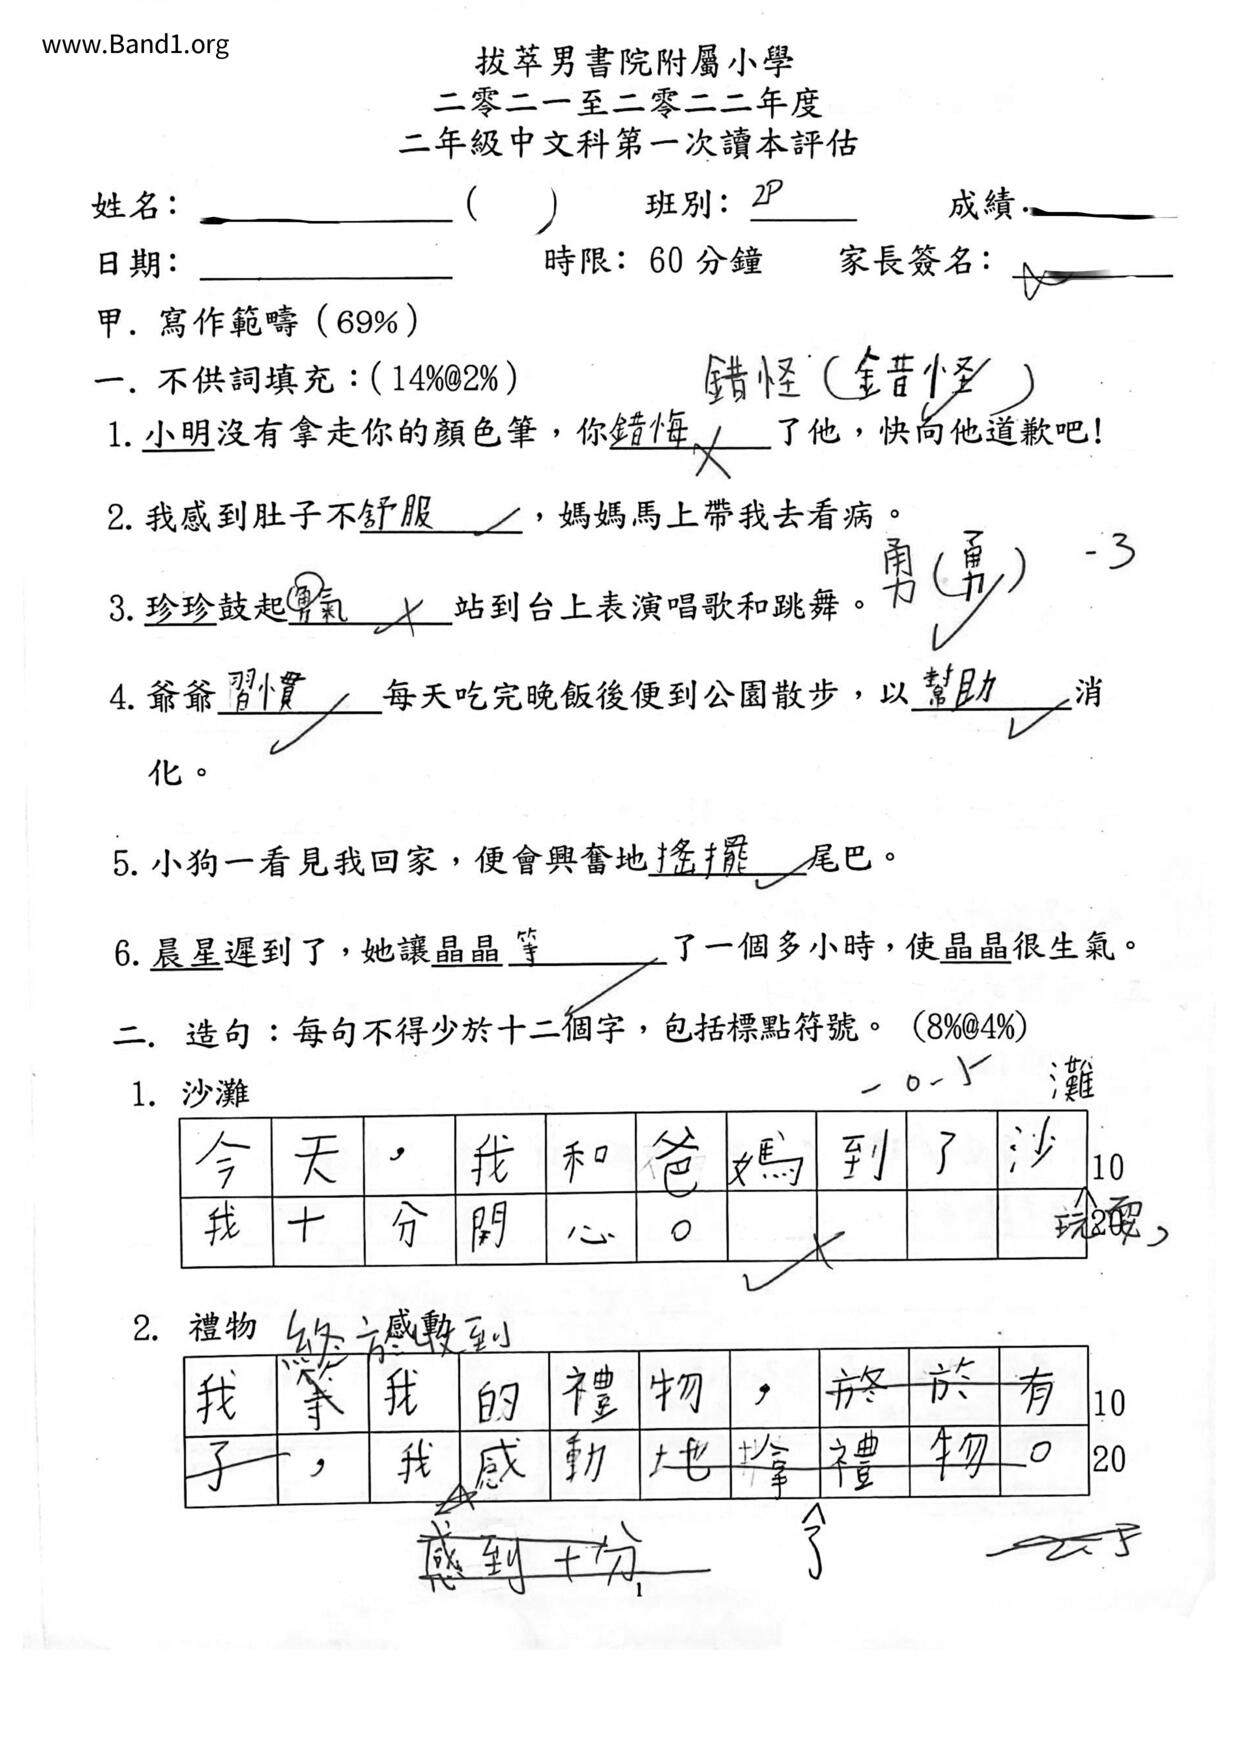 www.Band1.org
拔萃男書院附屬小學
二零二一至二零二二年度
二年級中文科第一次讀本評估
姓名：( ) 班別：2P 成績：
日期： 時限：60 分鐘 家長簽名：
甲．寫作範疇（69%）
一．不供詞填充：(14%@2%)
錯怪（錯怪）
1. 小明沒有拿走你的顏色筆，你錯悔了他，快向他道歉吧！
2. 我感到肚子不舒服，媽媽馬上帶我去看病。
勇（勇） -3
3. 珍珍鼓起勇氣站到台上表演唱歌和跳舞。
4. 爺爺習慣每天吃完晚飯後便到公園散步，以幫助消
化。
5. 小狗一看見我回家，便會興奮地搖擺尾巴。
6. 晨星遲到了，她讓晶晶等了一個多小時，使晶晶很生氣。
二．造句：每句不得少於十二個字，包括標點符號。(8%@4%)
1. 沙灘 -0.5 灘
今天，我和爸媽到了沙 10
我十分開心。 玩耍， 20
2. 禮物 終於感收到
我等我的禮物，於於有 10
子，我感動地拿禮物。 20
感到十分 了
1